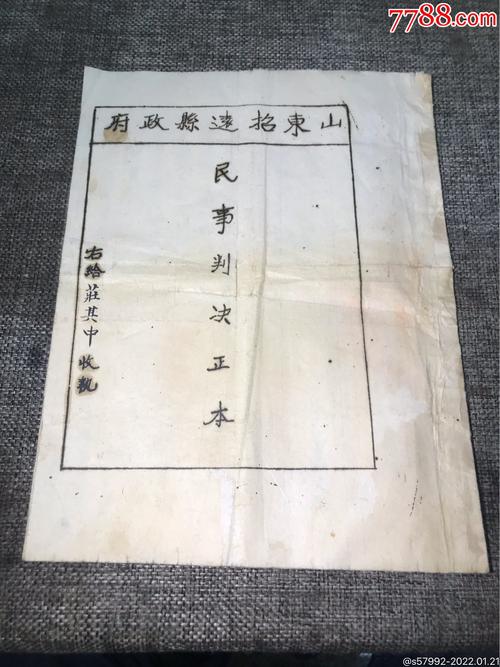 7788.com
山東招遠縣政府
民事判决正本
右給莊其中收執
@s57992-2022.01.21